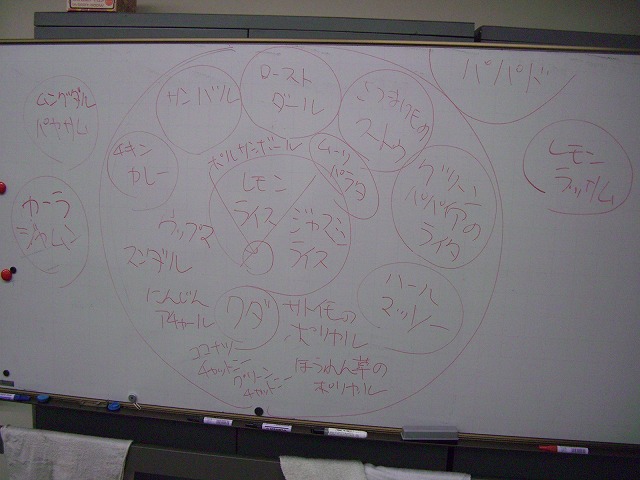 ムングダル
パヤサム
カーラ
ジャムーン
サンバル
ロースト
ダール
さつまいもの
ストゥ
パパド
レモン
ラッサム
チキン
カレー
レモン
ライス
ジャスミン
ライス
グリーン
パパイアの
ライタ
ウップス
スンダル
にんじん
アチャール
ワダ
サトイモの
ポリヤル
ココナツ
チャットニー
グリーン
チャットニー
ほうれん草の
ポリヤル